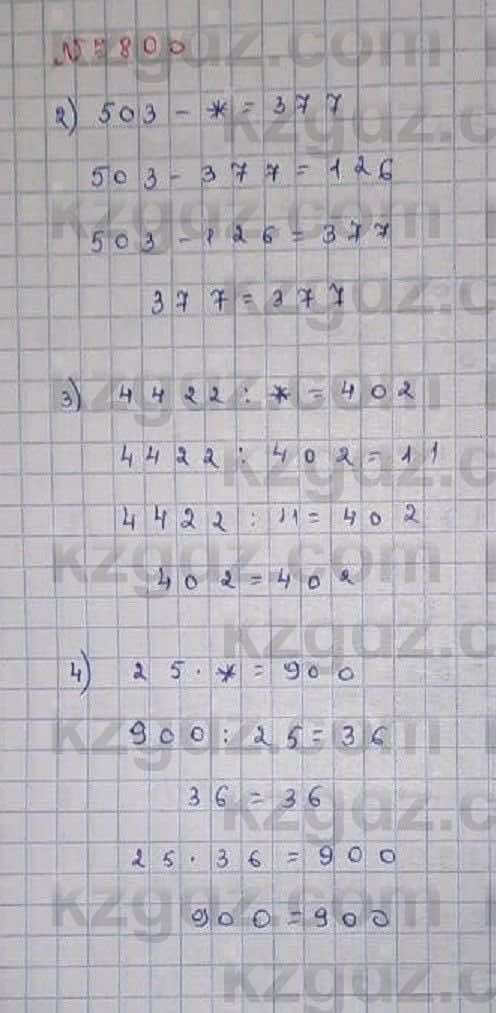 N 5800
2) 503 - * = 377
503 - 377 = 126
503 - 126 = 377
377 = 377
3) 4422 : * = 402
4422 : 402 = 11
4422 : 11 = 402
402 = 402
4) 25 · * = 900
900 : 25 = 36
36 = 36
25 · 36 = 900
900 = 900
kzgdz.com